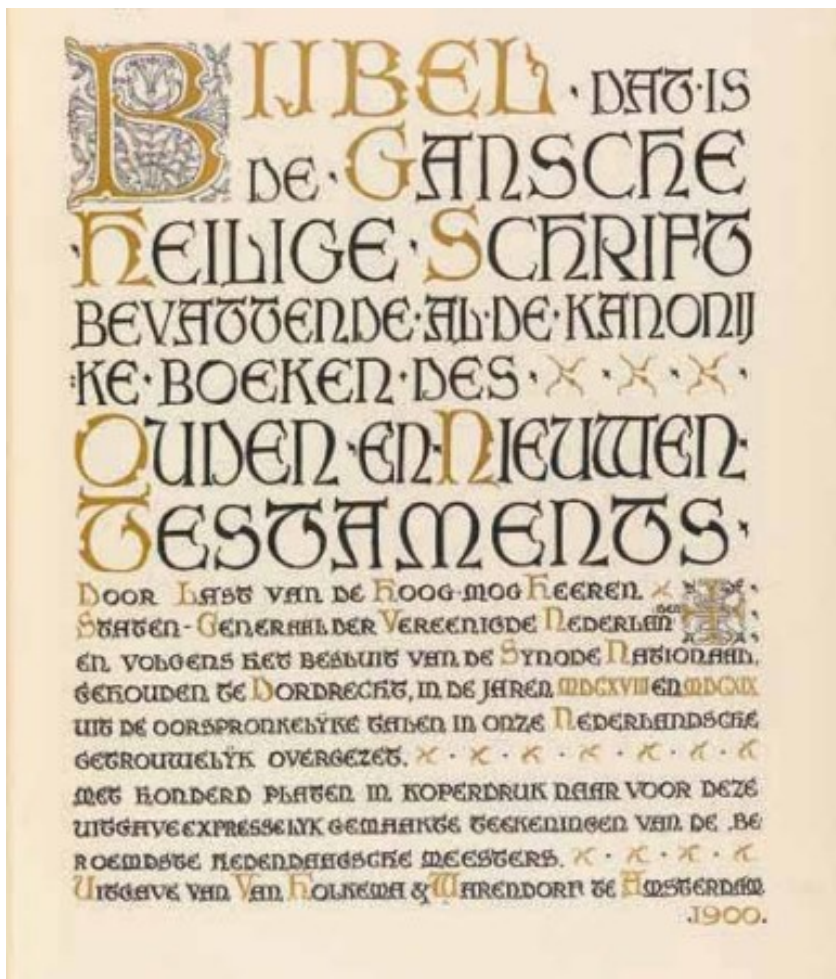 BIJBEL · DAT · IS
DE · GANSCHE
· HEILIGE · SCHRIFT
BEVATTENDE · AL · DE · KANONIJ
KE · BOEKEN · DES ·
OUDEN · EN · NIEUWEN ·
TESTAMENTS ·
DOOR LAST VAN DE HOOG · MOG HEEREN
STATEN - GENERAAL DER VEREENIGDE NEDERLAN DEN
EN VOLGENS HET BESLUIT VAN DE SYNODE NATIONAAL,
GEHOUDEN TE DORDRECHT, IN DE JAREN MDCXVIII EN MDCXIX
UIT DE OORSPRONKELYKE TALEN IN ONZE NEDERLANDSCHE
GETROUWELYK OVERGEZET.
MET HONDERD PLATEN IN KOPERDRUK NAAR VOOR DEZE
UITGAVE EXPRESSELYK GEMAAKTE TEEKENINGEN VAN DE BE
ROEMDSTE HEDENDAAGSCHE MEESTERS.
UITGAVE VAN VAN HOLKEMA & WARENDORF TE AMSTERDAM
.1900.